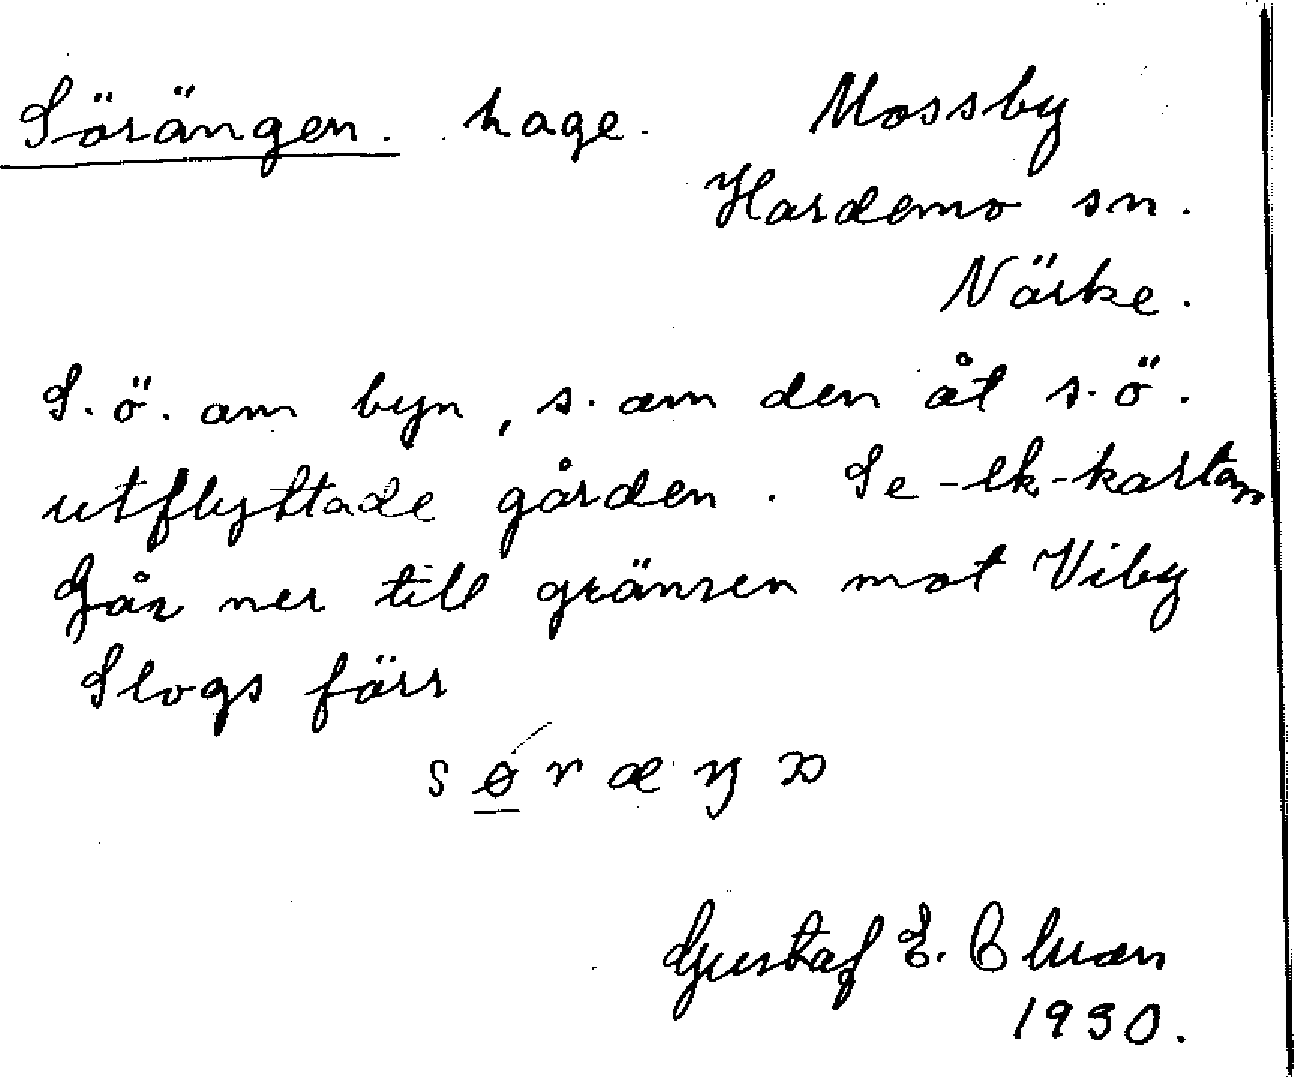 Sörängen. hage. Mossby
Hardemo sn.
Närke.
S. ö. om byn, s. om den åt s. ö.
utflyttade gården. Se -ek-kartan
Går ner till gränsen mot Viby
Slogs förr
Gustaf E.
1930.